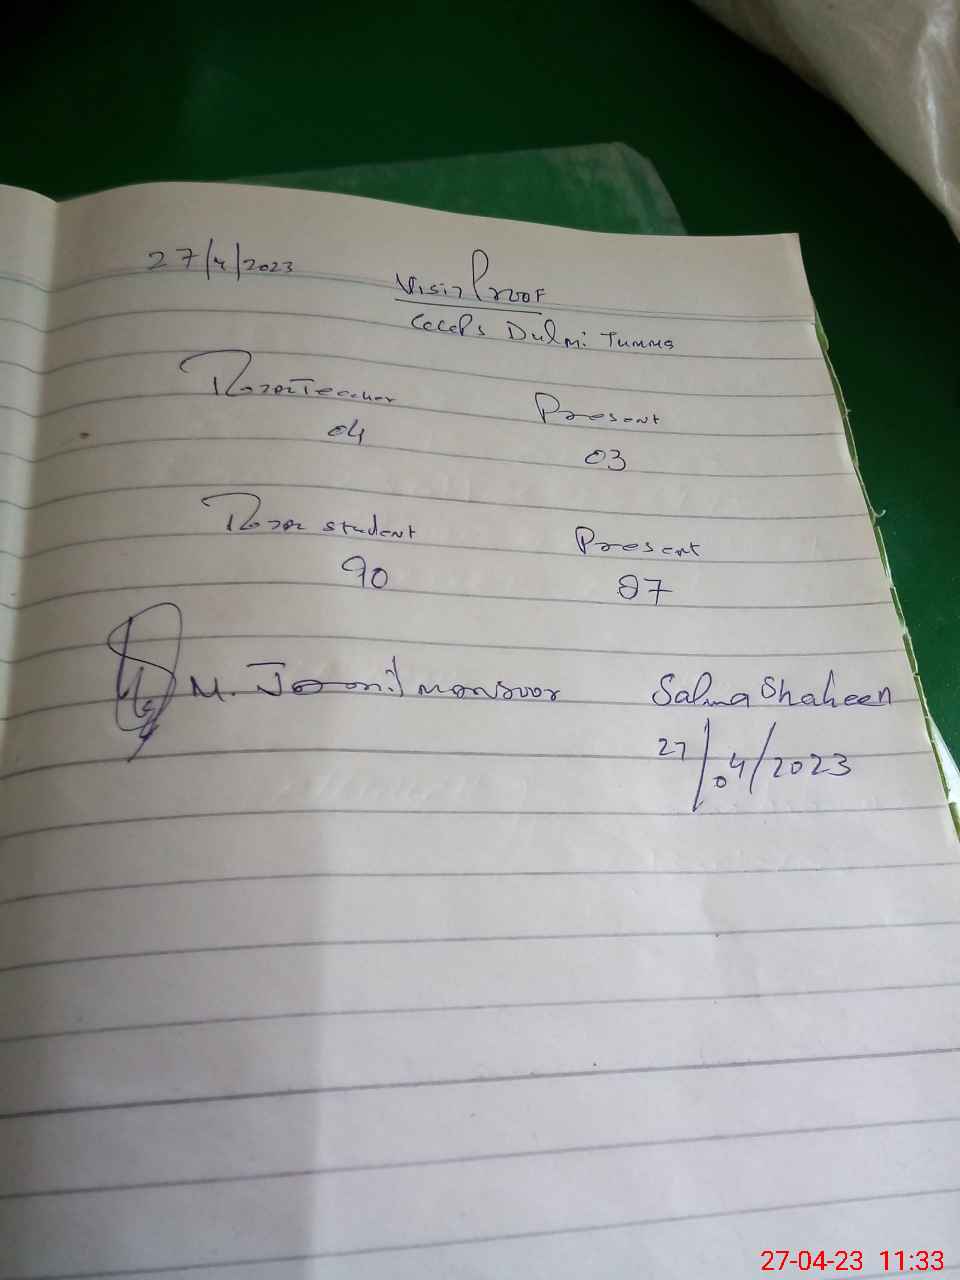 27/4/2023
Visit Proof
Dulmi Tumma
Total Teacher Present
04 03
Total student Present
90 07
M. Jamil mansoor Salma Shaheen
27/04/2023
27-04-23 11:33